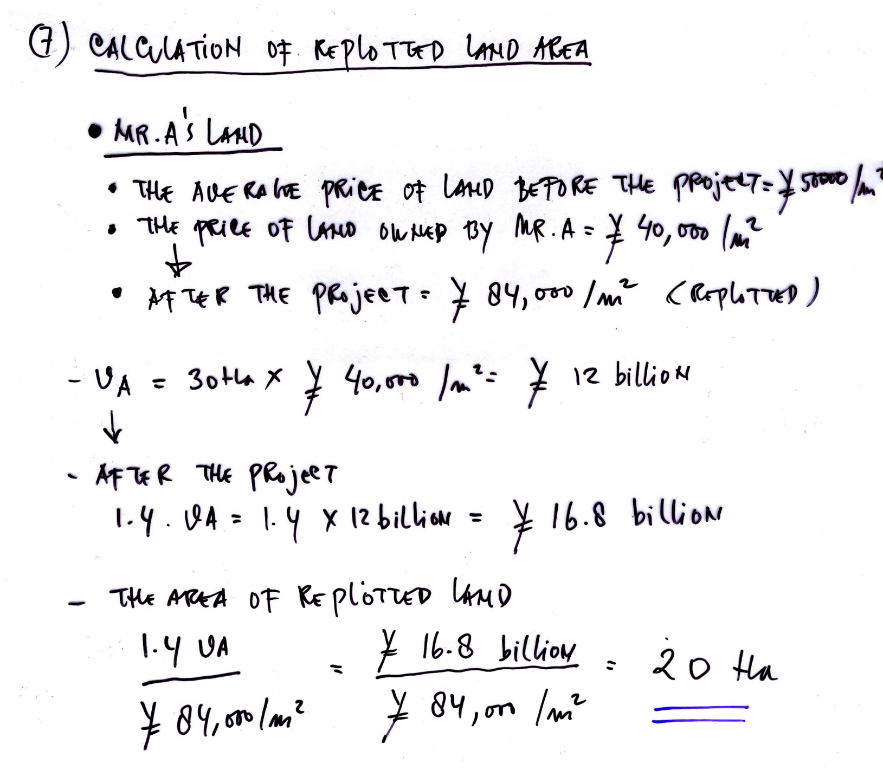 (7) CALCULATION OF REPLOTTED LAND AREA
• MR. A'S LAND
• THE AVERAGE PRICE OF LAND BEFORE THE PROJECT = ¥ 50000 /m²
• THE PRICE OF LAND OWNED BY MR. A = ¥ 40,000 /m²
↓
• AFTER THE PROJECT = ¥ 84,000 /m² (REPLOTTED)
- VA = 30 Ha × ¥ 40,000 /m² = ¥ 12 billion
↓
- AFTER THE PROJECT
1.4 . VA = 1.4 × 12 billion = ¥ 16.8 billion
- THE AREA OF REPLOTTED LAND
1.4 VA / ¥ 84,000/m² = ¥ 16.8 billion / ¥ 84,000 /m² = 20 Ha